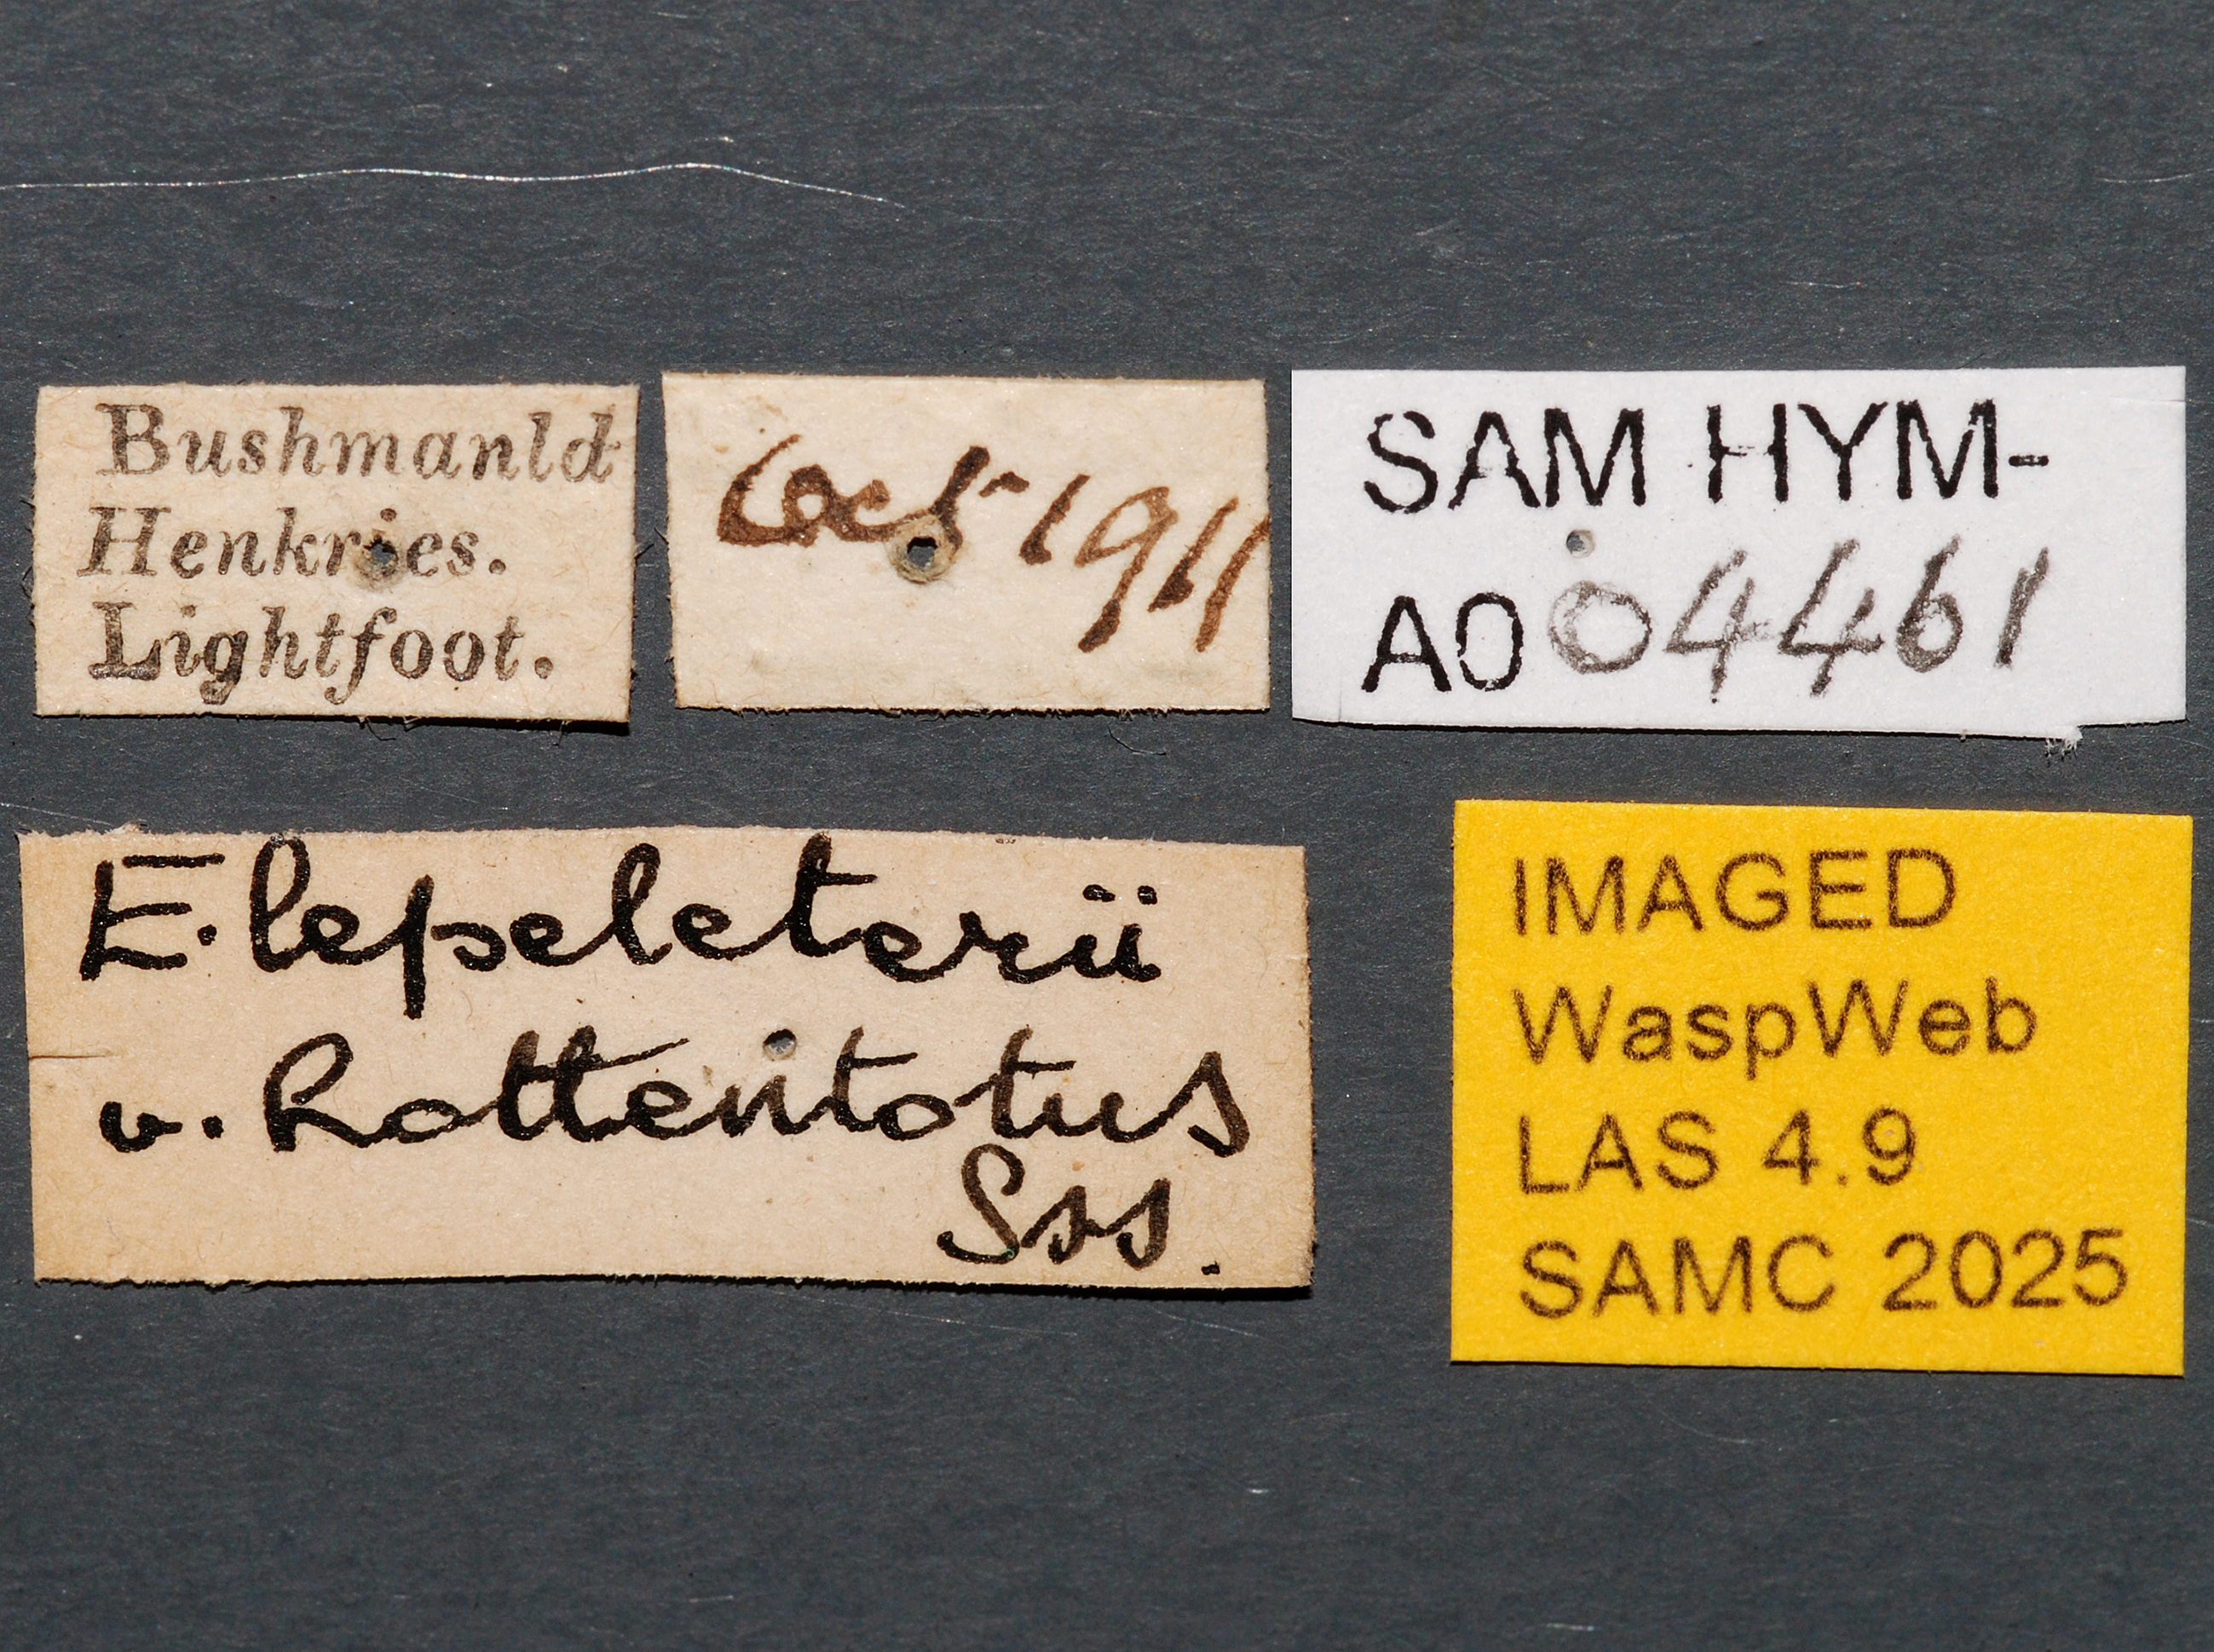 Bushmanld
Henkries.
Lightfoot.
Oct 1911
SAM HYM-
A004461
E. lepeleterii
v. hottentotus
Sss.
IMAGED
WaspWeb
LAS 4.9
SAMC 2025